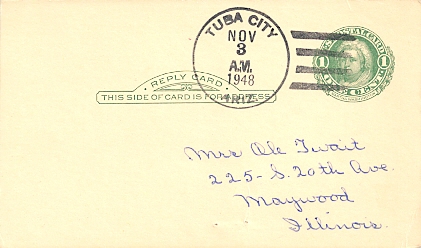 TUBA CITY
NOV
3
A.M.
1948
ARIZ.
U.S. POSTAL CARD
1 1
ONE CENT
REPLY CARD
THIS SIDE OF CARD IS FOR ADDRESS
Mrs Ole Twait
225- S. 20th Ave.
Maywood
Illinois.